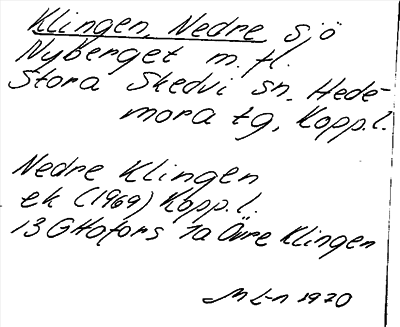 Klingen, Nedre sjö
Nyberget m.fl.
Stora Skedvi sn. Hede-
mora tg, Kopp.l.
Nedre Klingen
ek (1969) Kopp.l.
13G Hofors 1a Övre Klingen
M L-n 1970